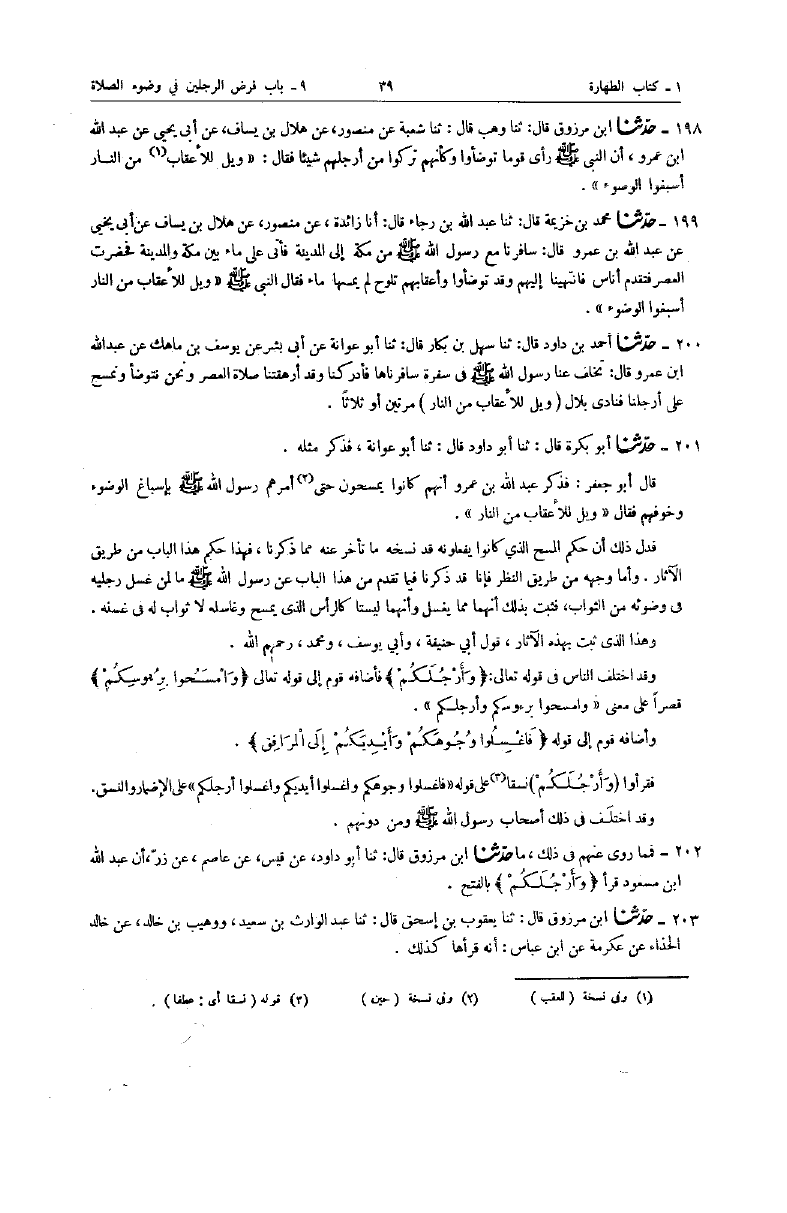 ١ ـ كتاب الطهارة ٣٩ ٩ ـ باب فرض الرجلين في وضوء الصلاة
١٩٨ ـ حدّثنا ابن مرزوق قال: ثنا وهب قال : ثنا شعبة عن منصور، عن هلال بن يساف، عن أبى يحيى عن عبد الله
ابن عمرو ، أن النبى ﷺ رأى قوما توضأوا وكأنهم تركوا من أرجلهم شيئا فقال : « ويل للأعقاب(١) من النار
أسبغوا الوضوء » .
١٩٩ ـ حدّثنا محمد بن خزيمة قال: ثنا عبد الله بن رجاء قال: أنا زائدة ، عن منصور، عن هلال بن يساف عن أبى يحيى
عن عبد الله بن عمرو قال: سافرنا مع رسول الله ﷺ من مكة إلى المدينة فأتى على ماء بين مكة والمدينة فحضرت
العصر فتقدم أناس فانتهينا إليهم وقد توضأوا وأعقابهم تلوح لم يمسها ماء فقال النبى ﷺ « ويل للأعقاب من النار
أسبغوا الوضوء » .
٢٠٠ ـ حدّثنا أحمد بن داود قال: ثنا سهل بن بكار قال: ثنا أبو عوانة عن أبى بشر عن يوسف بن ماهك عن عبدالله
ابن عمرو قال: تخلف عنا رسول الله ﷺ فى سفرة سافرناها فأدركنا وقد أرهقتنا صلاة العصر ونحن نتوضأ ونمسح
على أرجلنا فنادى بلال ( ويل للأعقاب من النار ) مرتين أو ثلاثاً .
٢٠١ ـ حدّثنا أبو بكرة قال : ثنا أبو داود قال : ثنا أبو عوانة ، فذكر مثله .
قال أبو جعفر : فذكر عبد الله بن عمرو أنهم كانوا يمسحون حتى(٢) أمرهم رسول الله ﷺ بإسباغ الوضوء
وخوفهم فقال « ويل للأعقاب من النار » .
فدل ذلك أن حكم المسح الذي كانوا يفعلونه قد نسخه ما تأخر عنه مما ذكرنا ، فهذا حكم هذا الباب من طريق
الآثار . وأما وجهه من طريق النظر فإنا قد ذكرنا فيا تقدم من هذا الباب عن رسول الله ﷺ ما لمن غسل رجليه
فى وضوئه من الثواب، فثبت بذلك أنهما مما يغسل وأنهما ليستا كالرأس الذى يمسح وغاسله لا ثواب له فى غسله .
وهذا الذى ثبت بهذه الآثار ، قول أبي حنيفة ، وأبي يوسف ، ومحمد ، رحمهم الله .
وقد اختلف الناس فى قوله تعالى:﴿ وَأَرْجُلَكُمْ ﴾ فأضافه قوم إلى قوله تعالى ﴿ وَامْسَحُوا بِرُءوسِكُمْ ﴾
قصراً على معنى « وامسحوا برءوسكم وأرجلكم » .
وأضافه قوم إلى قوله ﴿ فَاغْسِلُوا وُجُوهَكُمْ وَأَيْدِيَكُمْ إِلَى الْمَرَافِقِ ﴾ .
فقرأوا (وَأَرْجُلَكُمْ)نسقا(٣)على قوله «فاغسلوا وجوهكم واغسلوا أيديكم واغسلوا أرجلكم» على الإضمار والنسق.
وقد اختلف فى ذلك أصحاب رسول الله ﷺ ومن دونهم .
٢٠٢ ـ فما روى عنهم فى ذلك ، ما حدّثنا ابن مرزوق قال: ثنا أبو داود، عن قيس، عن عاصم ، عن زرّ ،أن عبد الله
ابن مسعود قرأ ﴿ وَأَرْجُلَكُمْ ﴾ بالفتح .
٢٠٣ ـ حدّثنا ابن مرزوق قال : ثنا يعقوب بن إسحق قال : ثنا عبد الوارث بن سعيد ، ووهيب بن خالد، عن خالد
الحذاء عن عكرمة عن ابن عباس : أنه قرأها كذلك .
(١) وفى نسخة ( للعقب ) (٢) وفى نسخة ( حين ) (٣) قوله ( نسقا أى : عطفا ) .